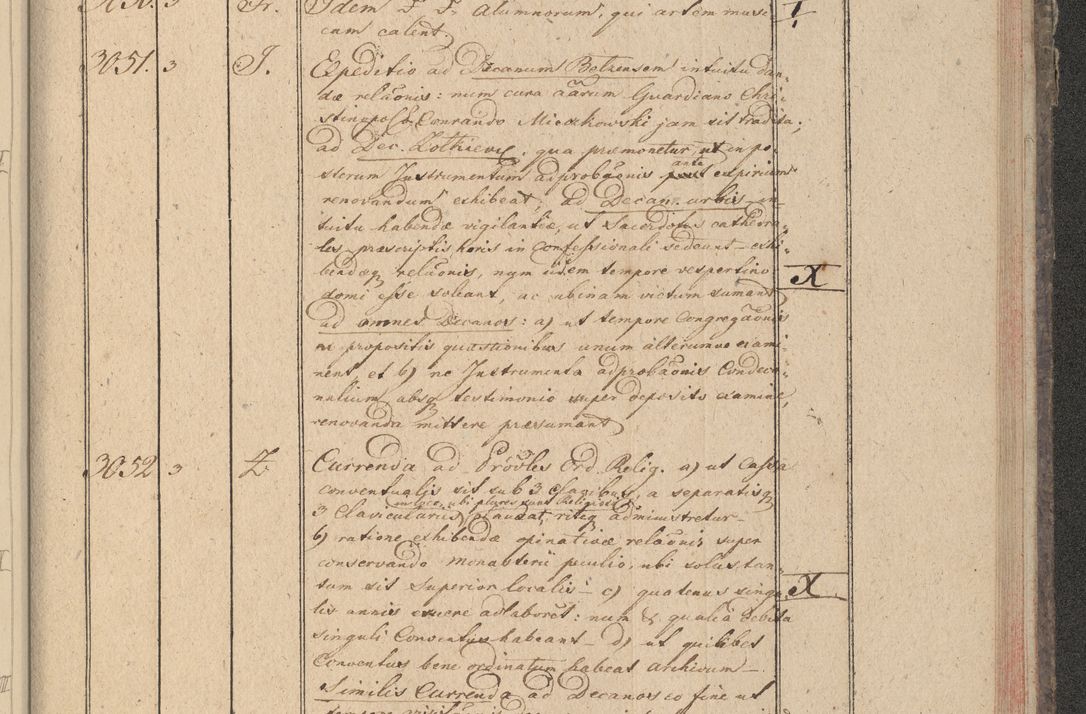 Fr. Idem F. F. Alumnorum, qui artem musi
cam calent
3051. 3 J. Expeditio ad Decanum Botzensem intuitu dan-
dæ relãonis: num cura aãrum Guardiano Chri-
Conrando Mieczkowski jam sit tradita;
ad Dec. qua præmonetur, ut in po-
sterum Instrumentum adprobãonis ante expirium
renovandum exhibeat; ad Decan. urbis in-
tuitu habendæ vigilantiæ, ut Sacerdotes cathedra-
les præscriptis horis in Confessionali sedeant exhi-
bendaq relãonis, num iidem tempore vespertino
domi esse soleant, ac ubinam victum sumant X
ad omnes Decanos: a) ut tempore Congregãonis
ex propositis quæstionibus unum alterumve exami-
nent, et b) ne Instrumenta adprobãonis Condeca-
nalium absq testimonio super deposito examine,
renovanda mittere præsumant
3052 3 Z. Currenda ad Prõvles Ord. Relig. a) ut Cassa
conventualis sit sub 3 clavibus, a separatisq
in loco, ubi plures sunt Religiosi
3 Claviculariis claudat, riteq administretur_
b) ratione exhibendæ opinativæ relãonis super
conservando monasterii peculio, ubi solus tan-
tum sit Superior localis_ c) quatenus singu- X
lis annis adlaboret: num & qualia debita
singuli Conventus habeant_ d) ut quilibet
Conventus bene ordinatum habeat archivum_
Similis Currenda ad Decanos eo fine ut